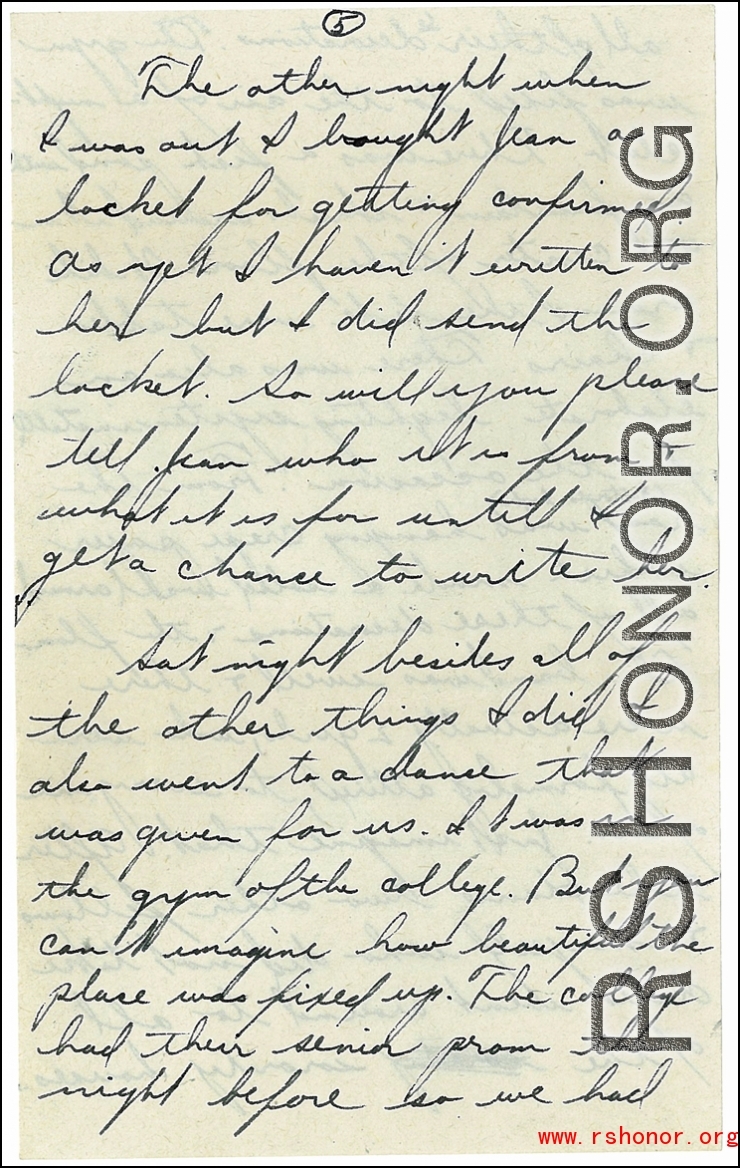 5
The other night when
I was out I bought Jean a
locket for getting confirmed.
As yet I haven't written to
her but I did send the
locket. So will you please
tell Jean who it is from &
what it is for untill I
get a chance to write her.
Sat night besides all of
the other things I did I
also went to a dance that
was given for us. It was in
the gym of the college. But you
can't imagine how beautiful the
place was fixed up. The college
had their senior prom the
night before so we had
RSHONOR.ORG
www.rshonor.org